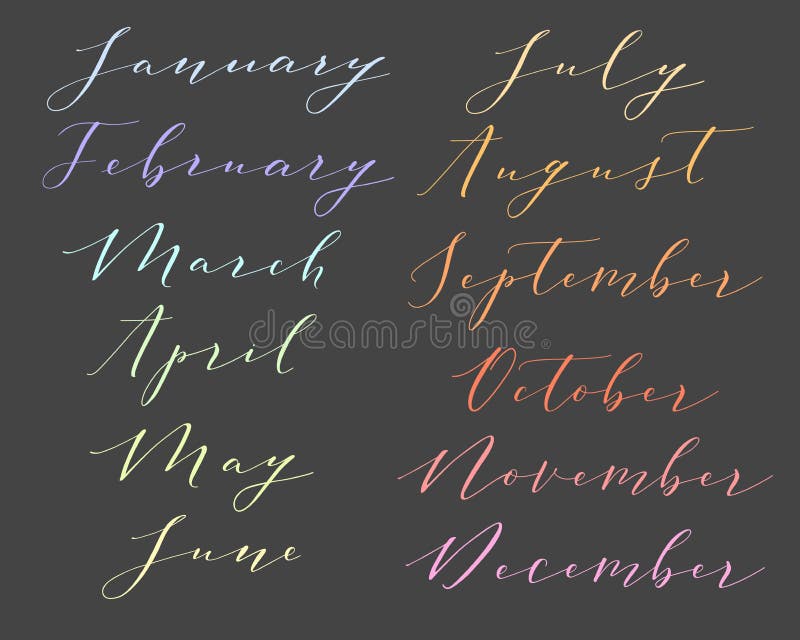 January
February
March
April
May
June
July
August
September
October
November
December
dreamstime